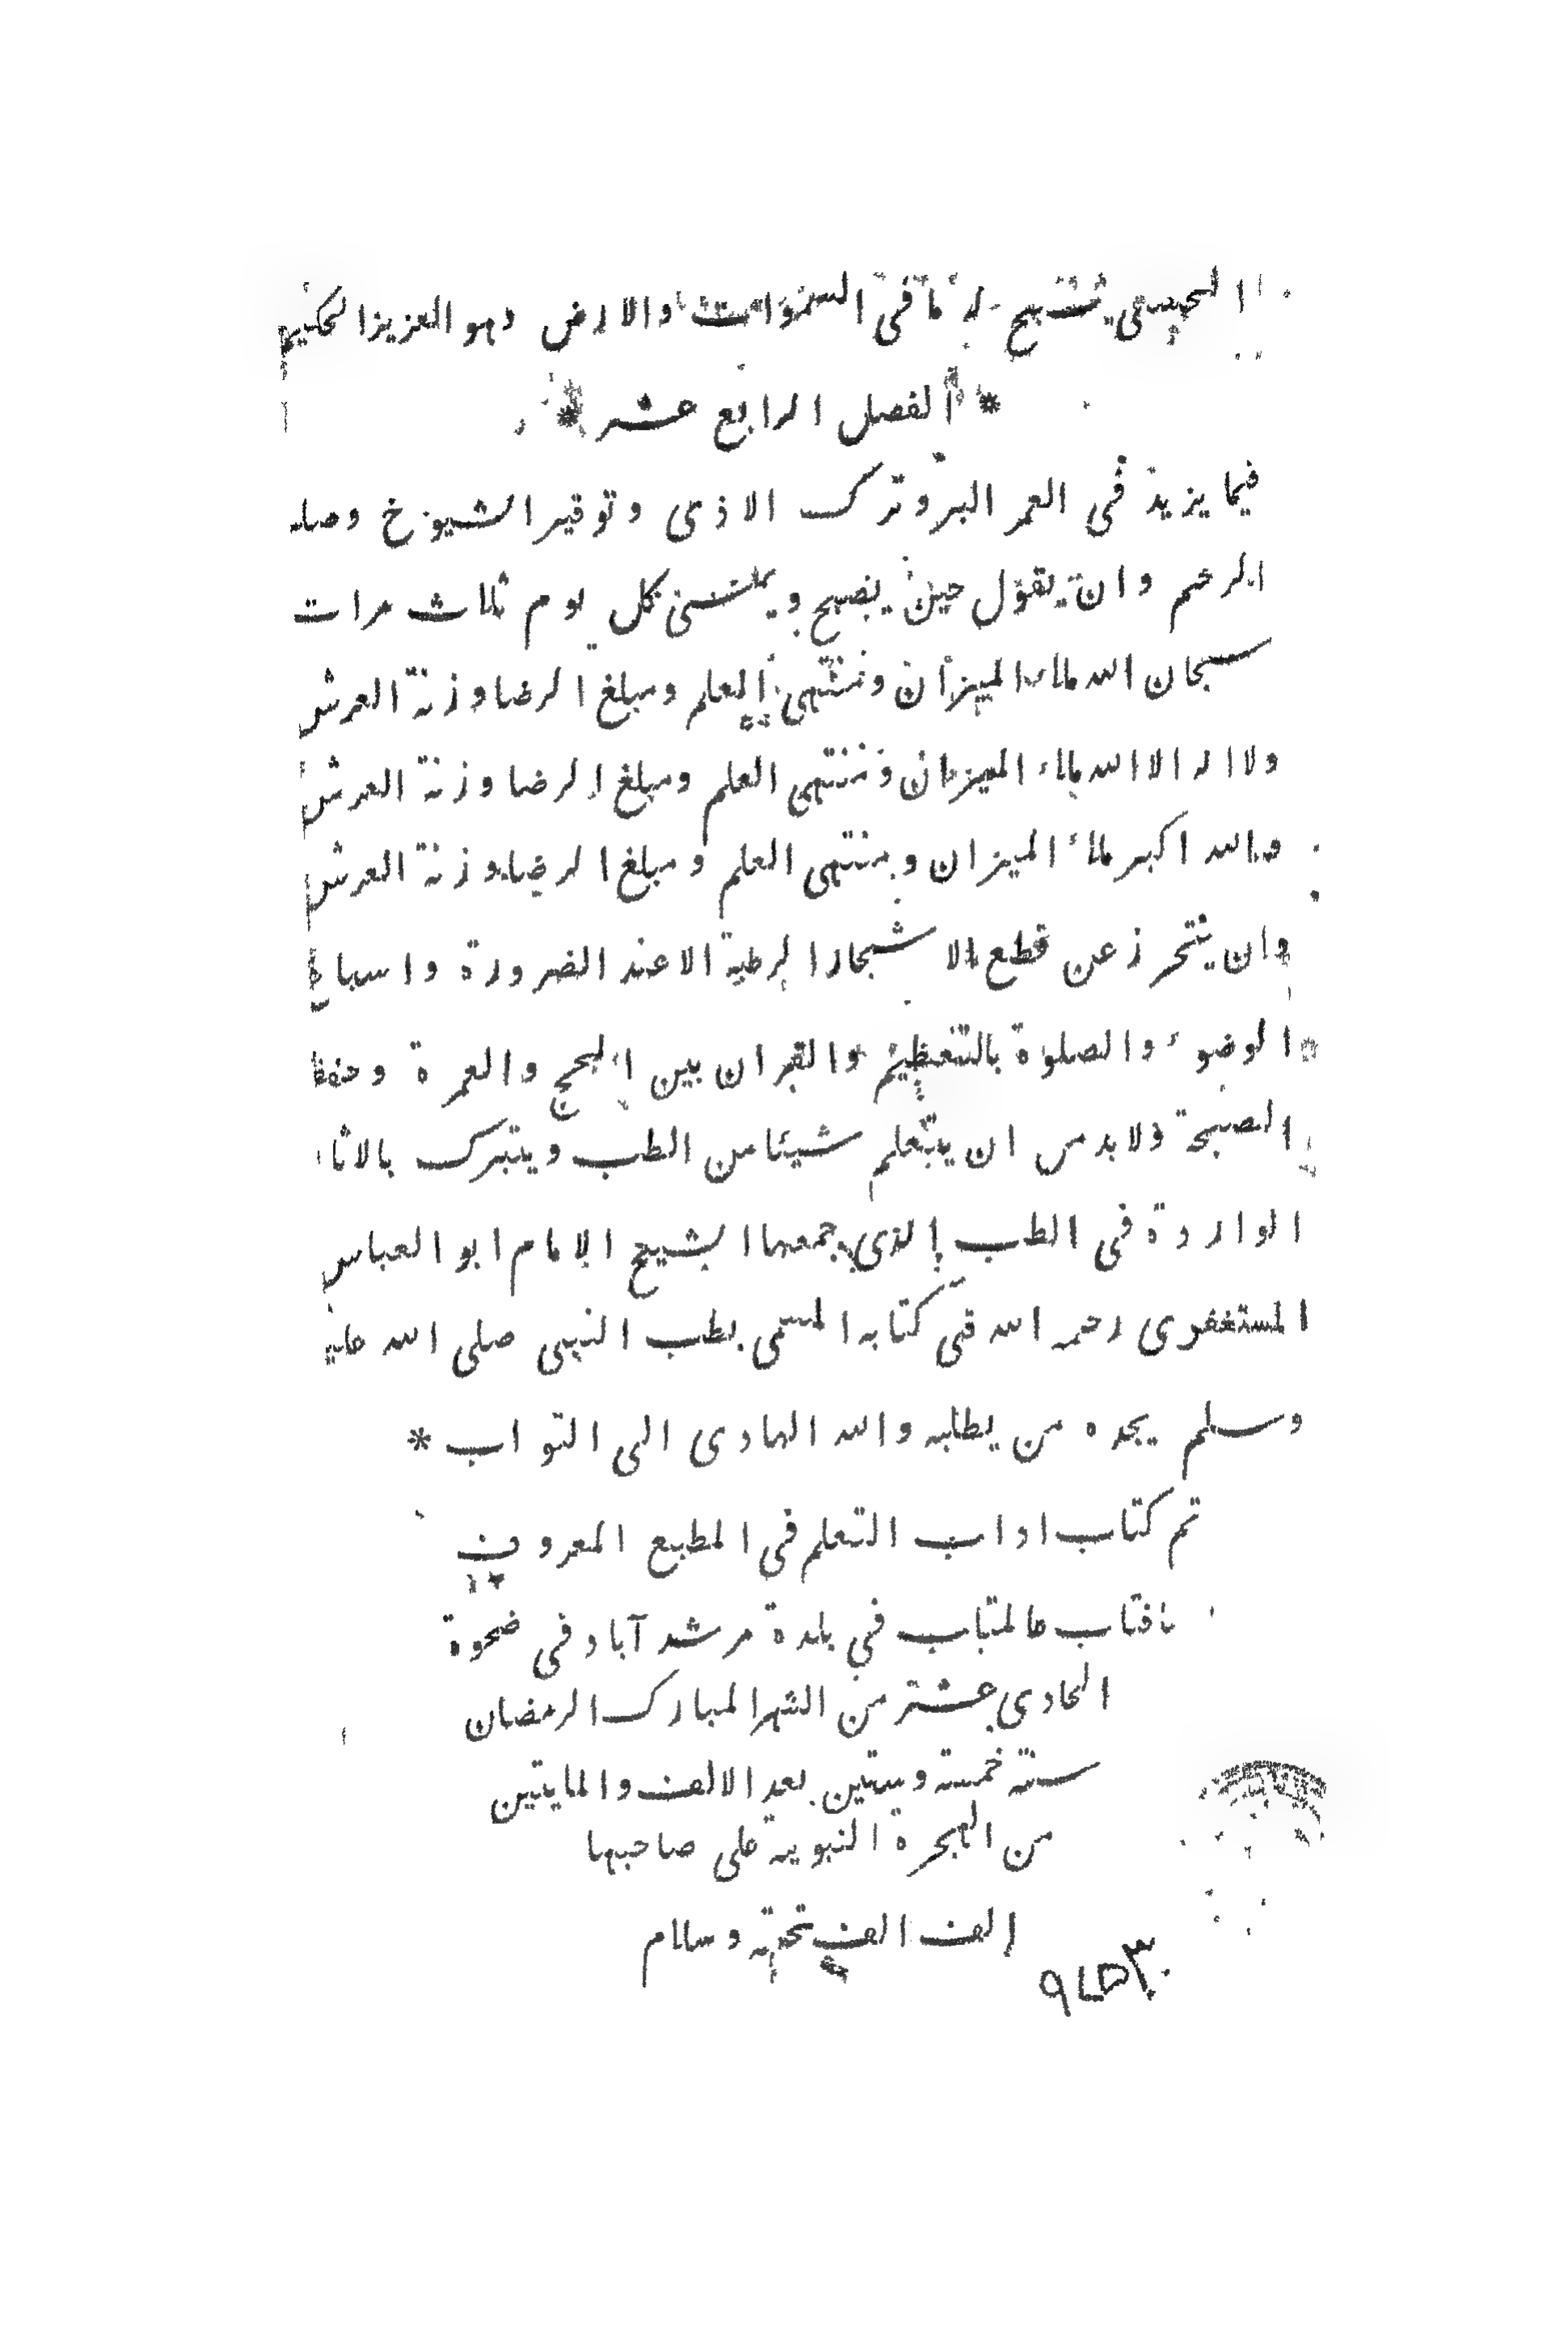 الحسنى يسبح له ما فى السموات والارض وهو العزيز الحكيم
* الفصل الرابع عشر *
فيما يزيد فى العمر البر وترك الاذى وتوقير الشيوخ وصلة
الرحم وان يقول حين يصبح ويمسى كل يوم ثلاث مرات
سبحان الله ملاء الميزان ومنتهى العلم ومبلغ الرضا وزنة العرش
ولا اله الا الله ملاء الميزان ومنتهى العلم ومبلغ الرضا وزنة العرش
والله اكبر ملاء الميزان ومنتهى العلم ومبلغ الرضا وزنة العرش
وان يتحرز عن قطع الاشجار الرطبة الا عند الضرورة واسباغ
الوضوء والصلوة بالتعظيم والقران بين الحج والعمرة وحفظ
الصحة ولا بد من ان يتعلم شيئا من الطب ويتبرك بالاثا
الواردة فى الطب الذى جمعها الشيخ الامام ابو العباس
المستغفرى رحمه الله فى كتابه المسمى بطب النبى صلى الله عليه
وسلم يجده من يطلبه والله الهادى الى التواب *
تم كتاب اداب التعلم فى المطبع المعروف
بافتاب عالمتاب فى بلدة مرشد آباد فى ضحوة
الحادى عشر من الشهر المبارك الرمضان
سنة خمسة وستين بعد الالف والمايتين
من الهجرة النبوية على صاحبها
الف الف تحية وسلام